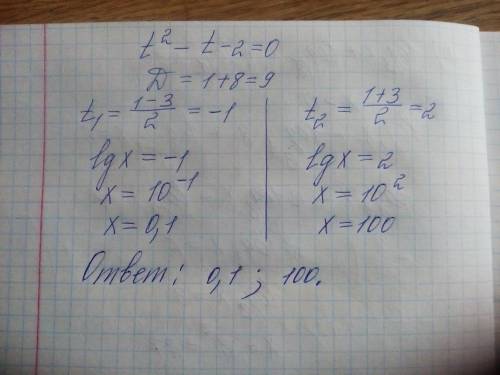 t² - t - 2 = 0
Д = 1+8 = 9
t₁ = (1-3)/2 = -1
lgx = -1
x = 10⁻¹
x = 0,1
t₂ = (1+3)/2 = 2
lgx = 2
x = 10²
x = 100
Ответ: 0,1 ; 100.